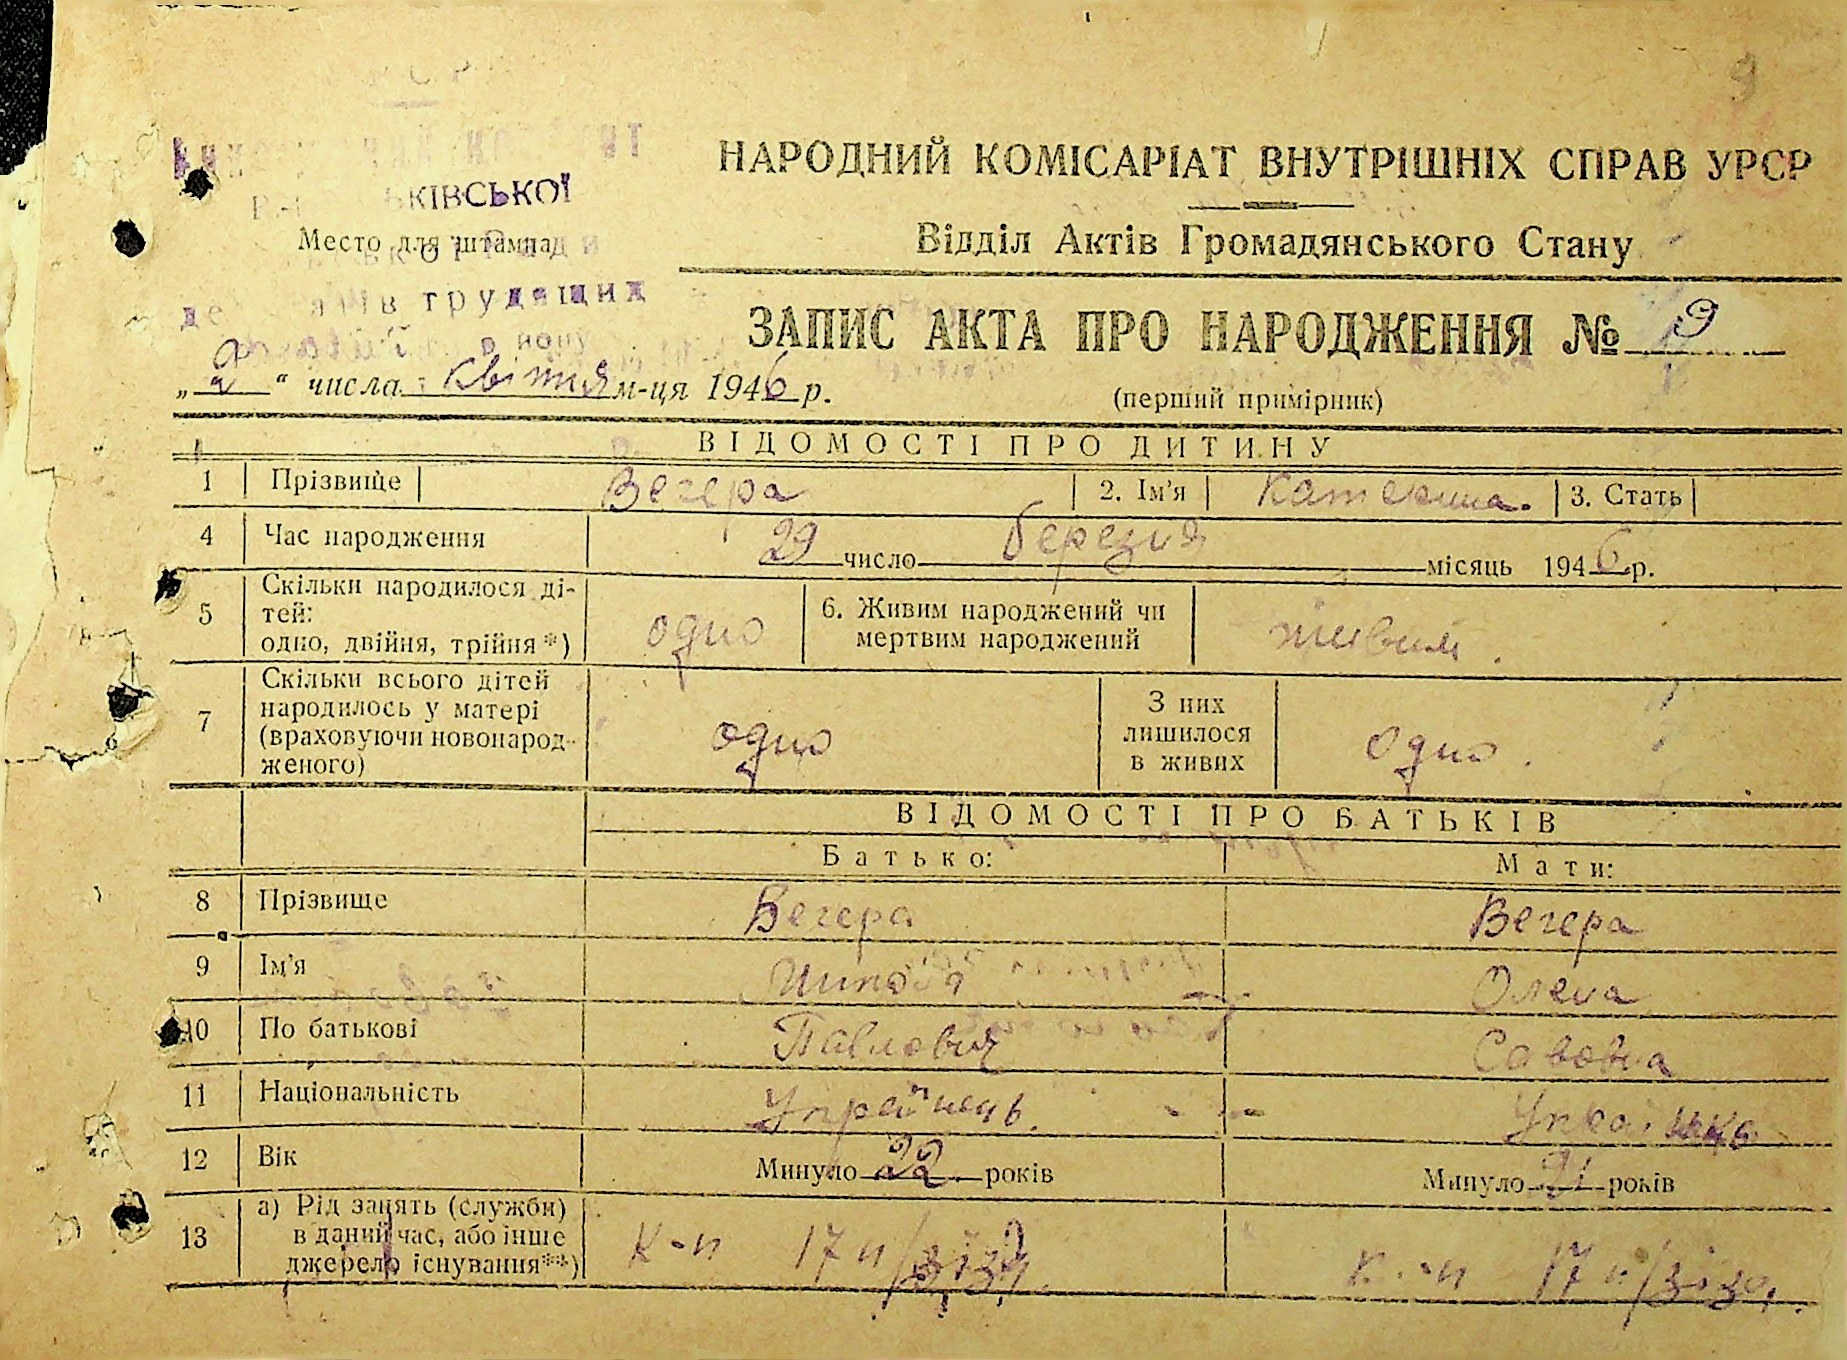 9
НАРОДНИЙ КОМІСАРІАТ ВНУТРІШНІХ СПРАВ УРСР
ЬКІВСЬКОЇ
Место для штампа
Відділ Актів Громадянського Стану
трудящих
ЗАПИС АКТА ПРО НАРОДЖЕННЯ № 9
„ 2 “ числа квітня м-ця 1946 р.
(перший примірник)
ВІДОМОСТІ ПРО ДИТИНУ
1 Прізвище Вечера 2. Ім'я Катерина. 3. Стать
4 Час народження 29 число березня місяць 1946 р.
5 Скільки народилося ді-
тей:
одно, двійня, трійня*) одно 6. Живим народжений чи
мертвим народжений живим.
7 Скільки всього дітей
народилось у матері
(враховуючи новонарод-
женого) одно З них
лишилося
в живих одно.
ВІДОМОСТІ ПРО БАТЬКІВ
Батько: Мати:
8 Прізвище Вечера Вечера
9 Ім'я Олена
10 По батькові Павлович Савовна
11 Національність Українець. Українка
12 Вік Минуло 22 років Минуло 21 років
13 а) Рід занять (служби)
в даний час, або інше
джерело існування**) к-п 17 п/з к-п 17 п/з